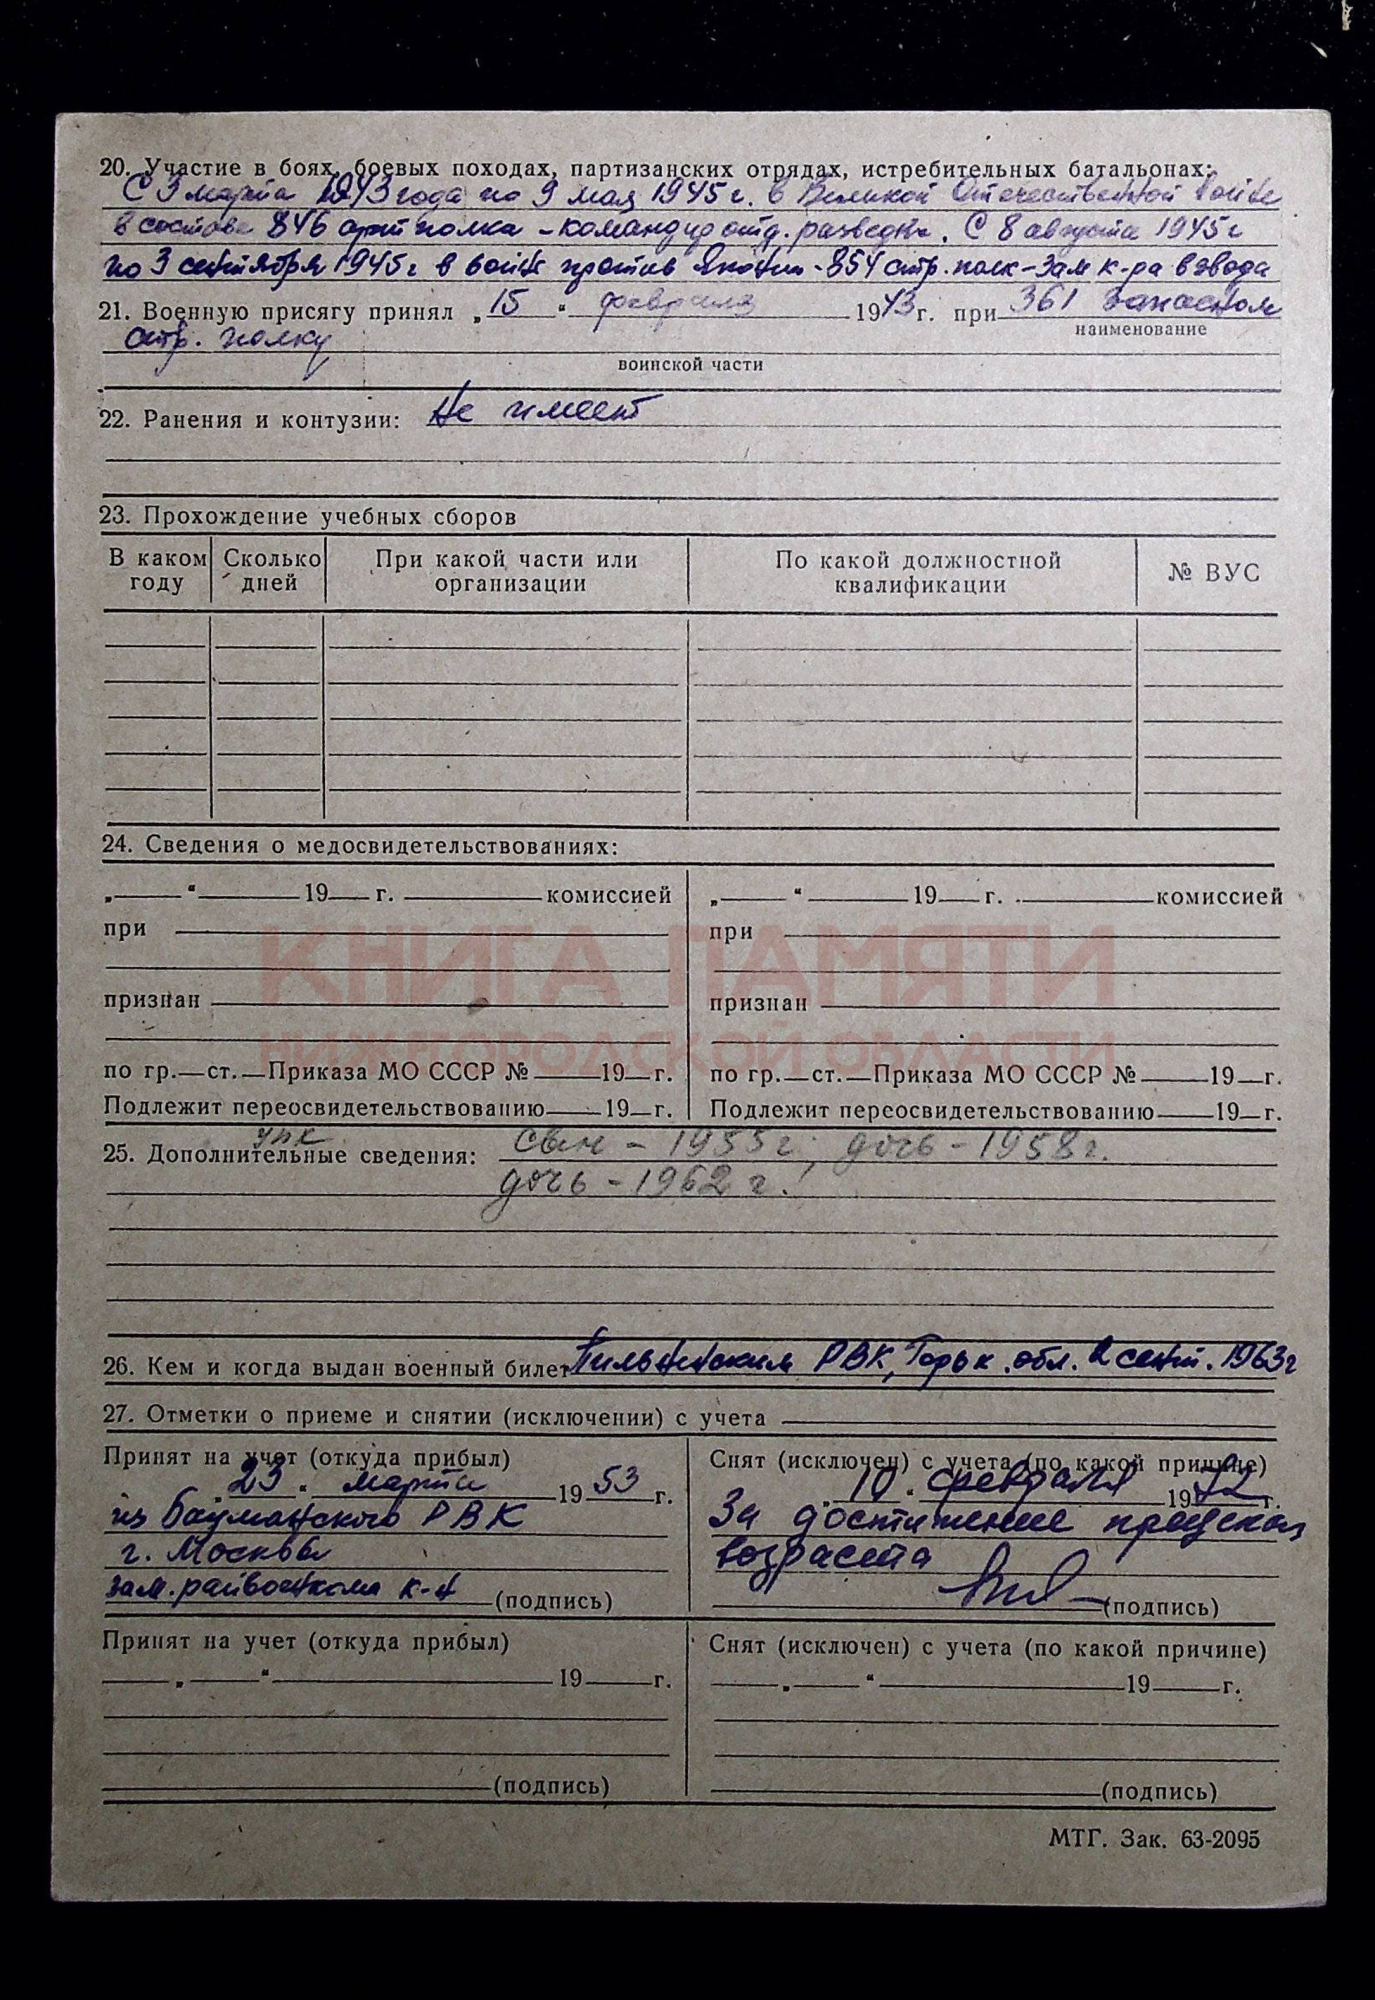 20. Участие в боях, боевых походах, партизанских отрядах, истребительных батальонах:
С 3 марта 1943 года по 9 мая 1945 г. в Великой Отечественной войне
в составе 846 арт полка - командир отд. разведки. С 8 августа 1945 г
по 3 сентября 1945 г в войне против Японии - 854 стр. полк - зам к-ра взвода
21. Военную присягу принял „15“ февраля 1943 г. при 361 запасном
наименование
стр. полку
воинской части
22. Ранения и контузии: Не имеет
23. Прохождение учебных сборов
В каком году Сколько дней При какой части или организации По какой должностной квалификации № ВУС
24. Сведения о медосвидетельствованиях:
„ “ 19 г. комиссией „ “ 19 г. комиссией
при при
КНИГА ПАМЯТИ
признан признан
НИЖЕГОРОДСКОЙ ОБЛАСТИ
по гр. ст. Приказа МО СССР № 19 г. по гр. ст. Приказа МО СССР № 19 г.
Подлежит переосвидетельствованию 19 г. Подлежит переосвидетельствованию 19 г.
25. Дополнительные сведения: сын - 1955 г., дочь - 1958 г.
дочь - 1962 г.
26. Кем и когда выдан военный билет Пильнинским РВК, Горьк. обл. 2 сент. 1963 г
27. Отметки о приеме и снятии (исключении) с учета
Принят на учет (откуда прибыл)
„23“ марта 1953 г.
из Бауманского РВК
г. Москва
зам. райвоенкома к-н (подпись)
Снят (исключен) с учета (по какой причине)
„10“ февраля 1972 г.
За достижение предельн
возраста
(подпись)
Принят на учет (откуда прибыл) Снят (исключен) с учета (по какой причине)
„ “ 19 г. „ “ 19 г.
(подпись) (подпись)
МТГ. Зак. 63-2095